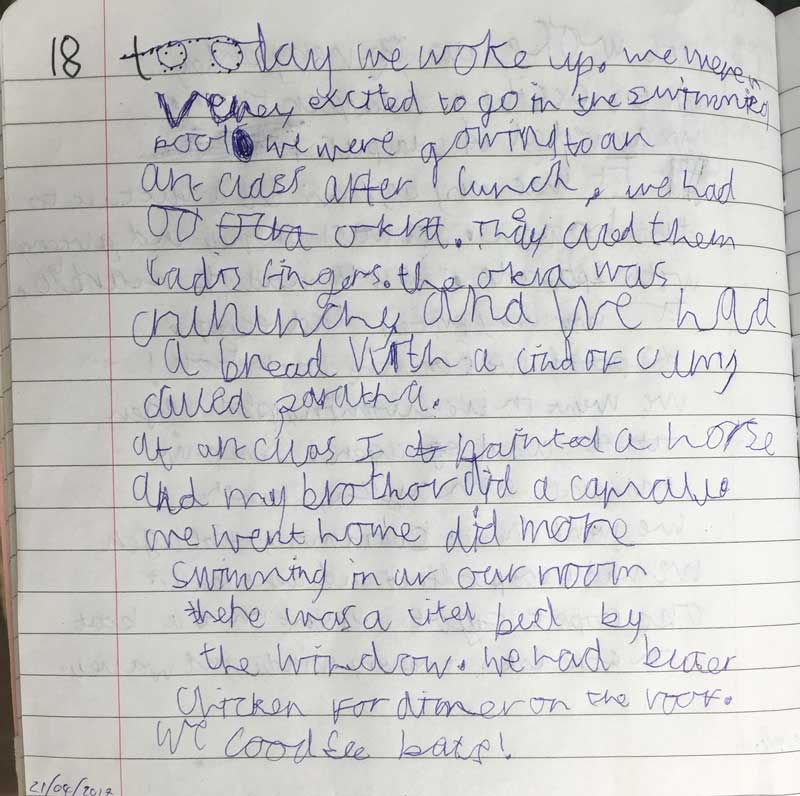 18 today we woke up. we were
very excited to go in the swimming
pool we were gowing to an
art class after lunch, we had
okra. They cared them
Ladis fingers. the okra was
crununchy and we had
a bread with a cind of curry
called paratha.
at art clas I painted a horse
and my brother did a camale
we went home did more
swimming in ur our room
there was a litel bed by
the window. we had buter
chicken for dinner on the roof.
We cood see bats!
21/04/2018